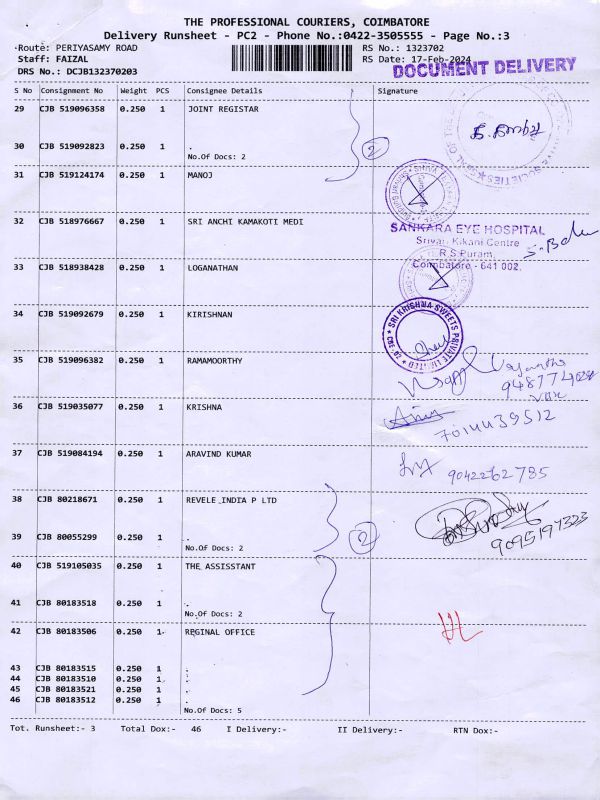 THE PROFESSIONAL COURIERS, COIMBATORE
Delivery Runsheet - PC2 - Phone No.:0422-3505555 - Page No.:3
Route: PERIYASAMY ROAD RS No.: 1323702
Staff: FAIZAL RS Date: 17-Feb-2024
DRS No.: DCJB132370203
DOCUMENT DELIVERY
S No Consignment No Weight PCS Consignee Details Signature
29 CJB 519096358 0.250 1 JOINT REGISTAR
30 CJB 519092823 0.250 1 .
No.Of Docs: 2
2
31 CJB 519124174 0.250 1 MANOJ
32 CJB 518976667 0.250 1 SRI ANCHI KAMAKOTI MEDI
SANKARA EYE HOSPITAL
Srivari Kikani Centre
R.S.Puram,
Coimbatore - 641 002.
33 CJB 518938428 0.250 1 LOGANATHAN
34 CJB 519092679 0.250 1 KIRISHNAN
SRI KRISHNA SWEETS PRIVATE LIMITED
35 CJB 519096382 0.250 1 RAMAMOORTHY
36 CJB 519035077 0.250 1 KRISHNA
7014439512
37 CJB 519084194 0.250 1 ARAVIND KUMAR
9042262785
38 CJB 80218671 0.250 1 REVELE INDIA P LTD
39 CJB 80055299 0.250 1 .
No.Of Docs: 2
2
9095197333
40 CJB 519105035 0.250 1 THE ASSISSTANT
41 CJB 80183518 0.250 1 .
No.Of Docs: 2
42 CJB 80183506 0.250 1 REGINAL OFFICE
43 CJB 80183515 0.250 1 .
44 CJB 80183510 0.250 1 .
45 CJB 80183521 0.250 1 .
46 CJB 80183512 0.250 1 .
No.Of Docs: 5
Tot. Runsheet:- 3 Total Dox:- 46 I Delivery:- II Delivery:- RTN Dox:-